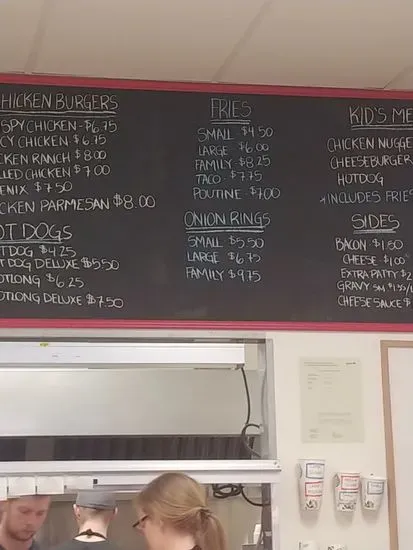 HICKEN BURGERS
SPY CHICKEN - $6.75
CY CHICKEN $6.75
CKEN RANCH $8.00
LLED CHICKEN $7.00
ENIX $7.50
CKEN PARMESAN $8.00
OT DOGS
T DOG $4.25
T DOG DELUXE $5.50
OTLONG $6.25
OTLONG DELUXE $7.50
FRIES
SMALL $4.50
LARGE $6.00
FAMILY $8.25
TACO $7.75
POUTINE $7.00
ONION RINGS
SMALL $5.50
LARGE $6.75
FAMILY $9.75
KID'S ME
CHICKEN NUGGE
CHEESEBURGER
HOTDOG
*INCLUDES FRIES
SIDES
BACON $1.50
CHEESE $1.00
EXTRA PATTY $2
GRAVY SM $1.55/L
CHEESE SAUCE $